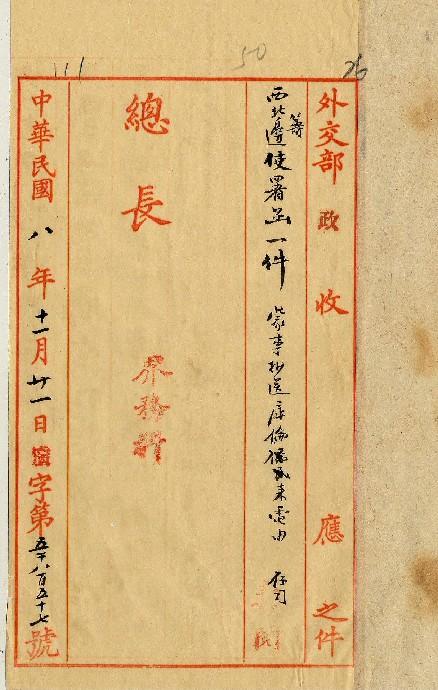 50
26
外交部 政 收 應 之件
西北籌邊使署函一件 蒙事抄送庫倫來電由 存司
總長
界務
中華民國八年十一月廿一日字第五千八百五十七號